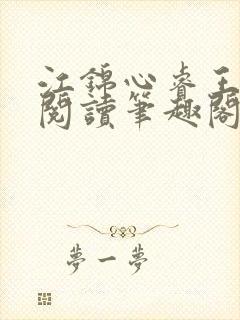 江錦心睿王
閱讀筆趣閣
夢一夢